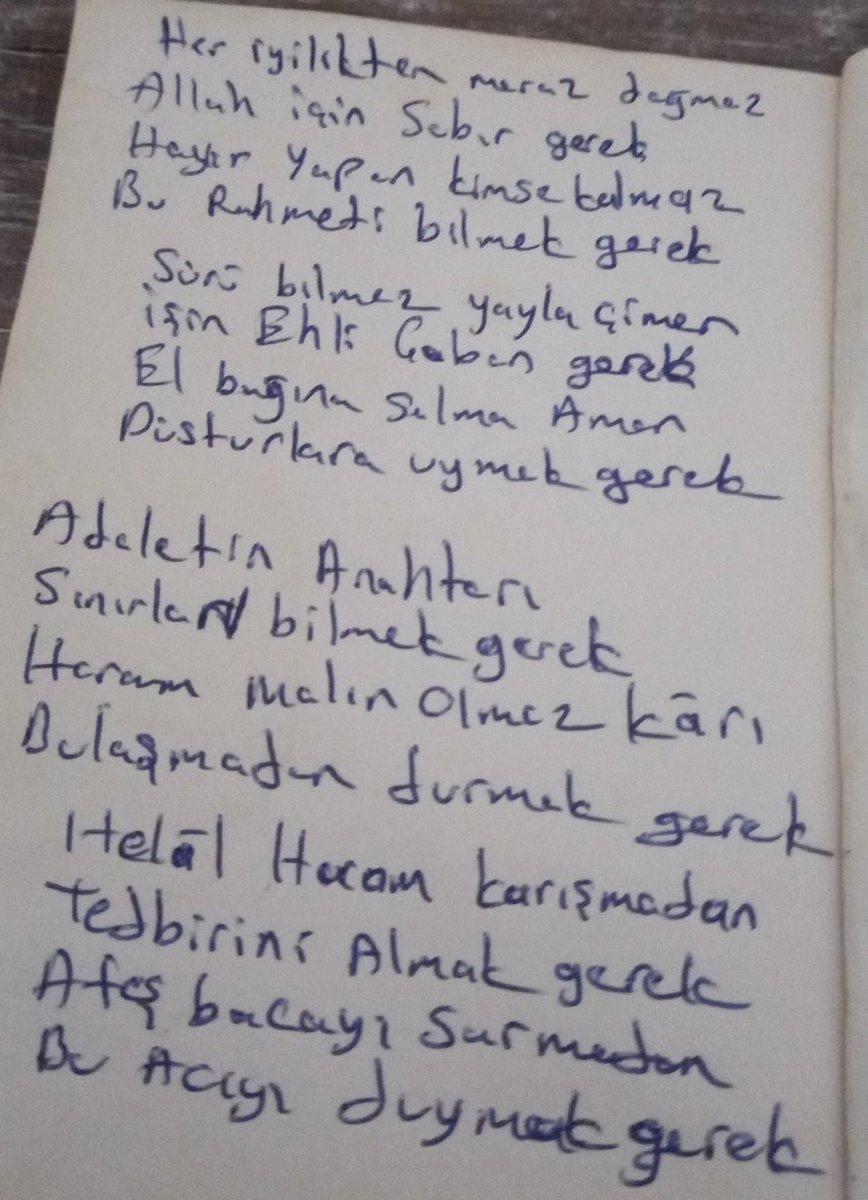 Her iyilikten maraz doğmaz
Allah için Sabır gerek
Hayır yapan kimse kalmaz
Bu Rahmeti bilmek gerek
Sürü bilmez yayla çimen
işin Ehli Çoban gerek
El bağına Salma Aman
Düsturlara uymak gerek
Adaletin Anahtarı
Sınırları bilmek gerek
Haram malın olmaz kârı
Bulaşmadan durmak gerek
Helâl Haram karışmadan
tedbirini Almak gerek
Ateş bacayı Sarmadan
Bu Acıyı duymak gerek